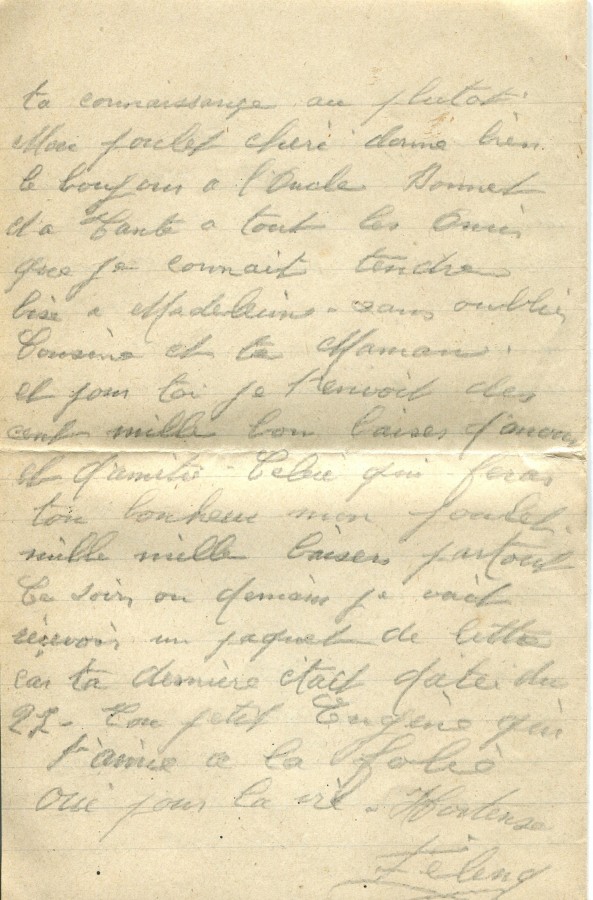 ta connaissance au plutot
Mon poulet cheri donne bien
le bonjour a l'Oncle Bonnet
d'a Tante a tout les Amis
que je connait tendre
bise a Madeleine - sans oublier
Cousine et ta Maman.
et pour toi je t'envoit des
cent mille bon baiser d'amour
et d'amitié - Celui qui feras
ton bonheur mon poulet.
mille mille baisers partout
Ce soir ou demain je vait
recevoir un paquet de lettre
car ta dernière était daté du
27 - Ton petit Eugène qui
t'aime a la folie
Oui pour la vie - Hortense